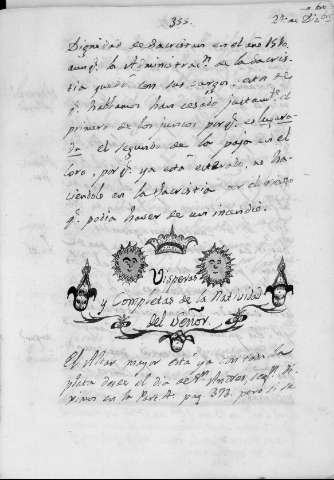 355.
24 de Dic.re
Dignidad de Sacristan en el año 1510.
aunq.e la Administraz.n de la Sacris-
tia quedó con sus cargos, esta de
q.e hablamos han cesado juntam.te el
primero de los juncos porq.e es
el segundo de los paja en el
Coro, porq.e ya está esterado, no ha-
ciendolo en la Sacristia por el riesgo
q.e podia haver de un incendio.
Visperas
y Completas de la Natividad
del Señor.
El Altar mayor está ya con toda la
plata desde el dia de S.n Andres, seg.n di-
ximos en la Parte A. pag. 373. pero si se